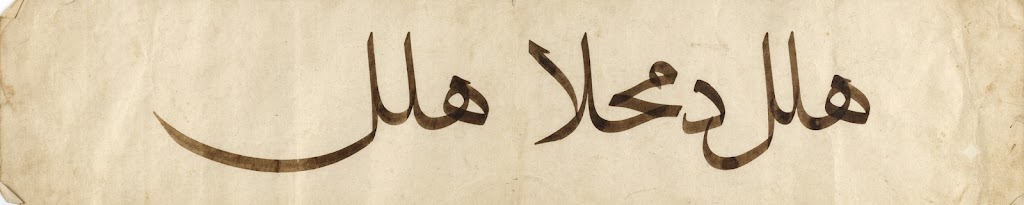 هلل دمحلا هلل